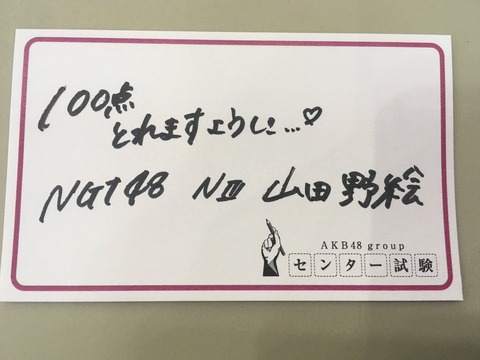 100点
とれますように…♡
NGT48 NⅢ 山田野絵
AKB48 group
センター試験